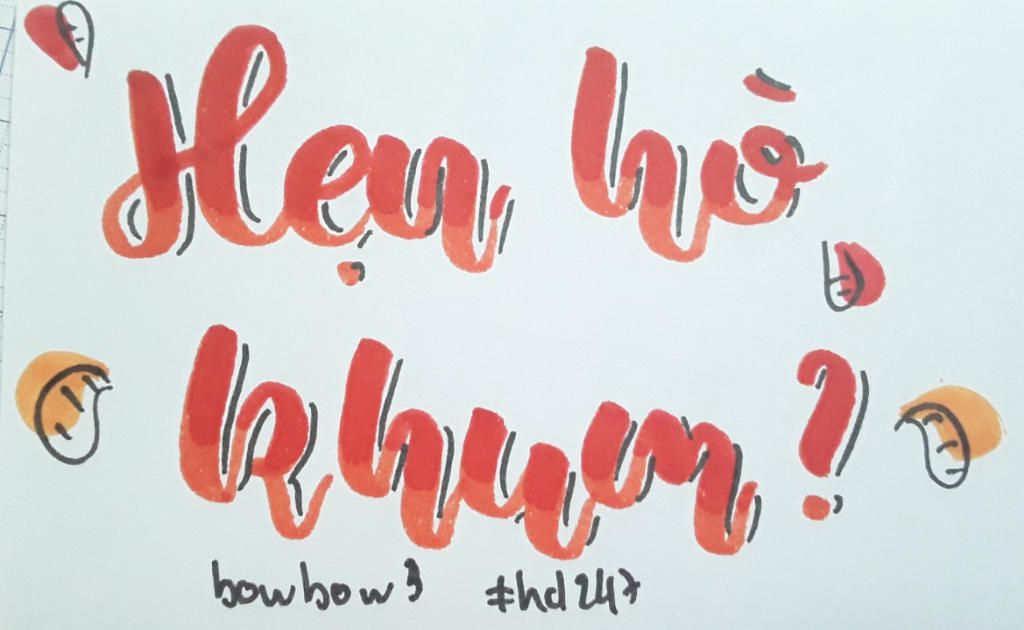 Hẹn hò
khum?
bowbow3 #hd247